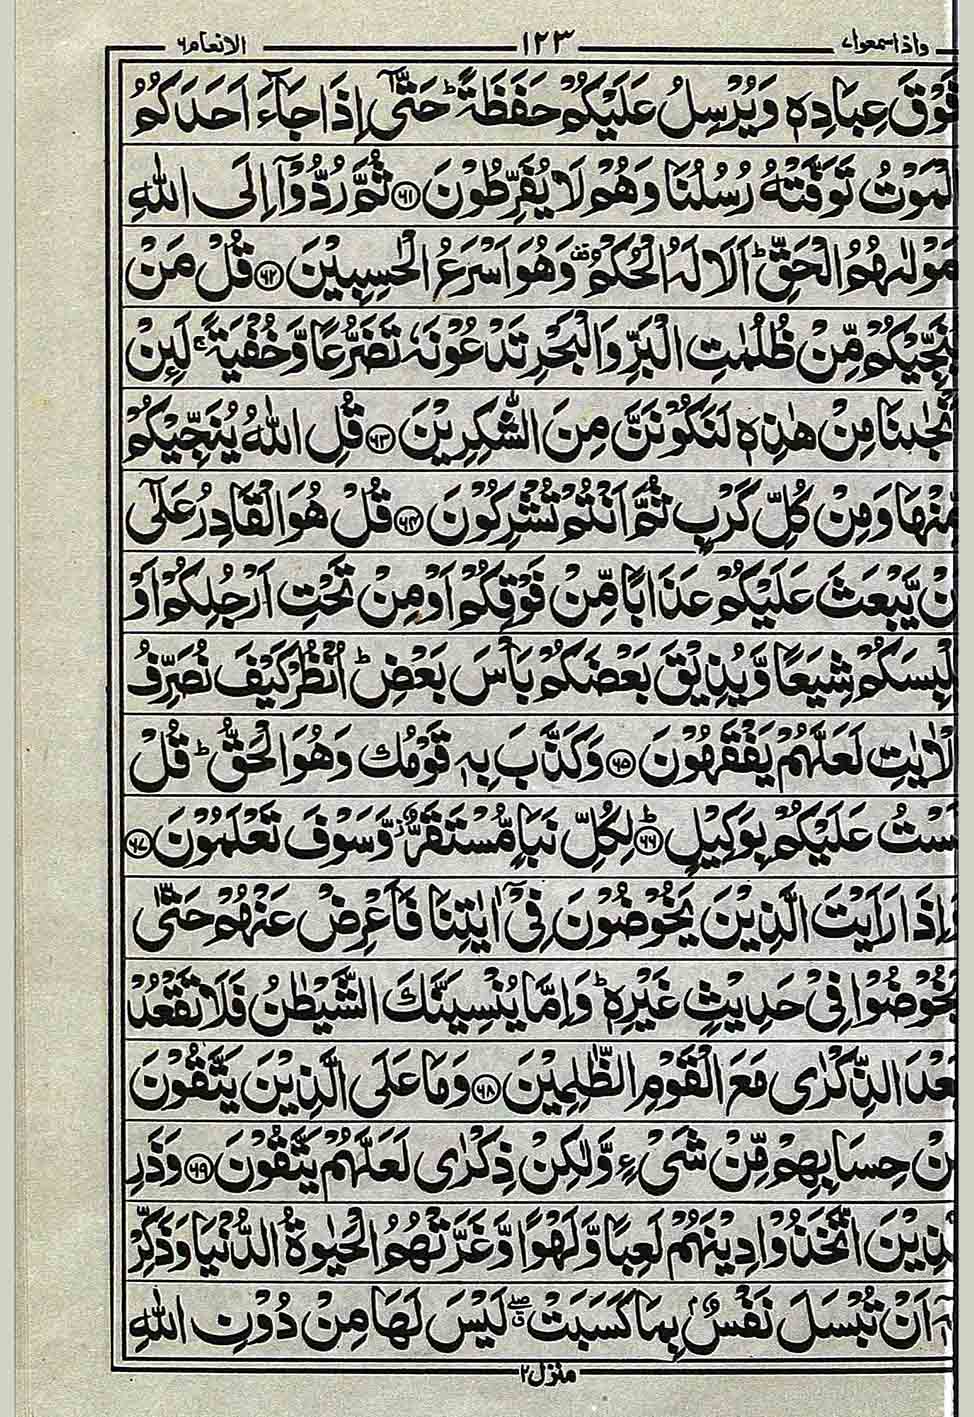 واذا سمعوا ۷ ۱۲۳ الانعام ۶
فَوْقَ عِبَادِهٖ وَيُرْسِلُ عَلَيْكُمْ حَفَظَةً ؕ حَتّٰۤى اِذَا جَآءَ اَحَدَكُمُ
لْمَوْتُ تَوَفَّتْهُ رُسُلُنَا وَهُمْ لَا يُفَرِّطُوْنَ ﴿۶۱﴾ ثُمَّ رُدُّوْۤا اِلَى اللّٰهِ
مَوْلٰىهُمُ الْحَقِّ ؕ اَلَا لَهُ الْحُكْمُ ۫ وَهُوَ اَسْرَعُ الْحٰسِبِيْنَ ﴿۶۲﴾ قُلْ مَنْ
يُنَجِّيْكُمْ مِّنْ ظُلُمٰتِ الْبَرِّ وَالْبَحْرِ تَدْعُوْنَهٗ تَضَرُّعًا وَّخُفْيَةً ۚ لَئِنْ
نْجٰىنَا مِنْ هٰذِهٖ لَنَكُوْنَنَّ مِنَ الشّٰكِرِيْنَ ﴿۶۳﴾ قُلِ اللّٰهُ يُنَجِّيْكُمْ
مِّنْهَا وَمِنْ كُلِّ كَرْبٍ ثُمَّ اَنْتُمْ تُشْرِكُوْنَ ﴿۶۴﴾ قُلْ هُوَ الْقَادِرُ عَلٰۤى
نْ يَّبْعَثَ عَلَيْكُمْ عَذَابًا مِّنْ فَوْقِكُمْ اَوْ مِنْ تَحْتِ اَرْجُلِكُمْ اَوْ
لْبِسَكُمْ شِيَعًا وَّيُذِيْقَ بَعْضَكُمْ بَاْسَ بَعْضٍ ؕ اُنْظُرْ كَيْفَ نُصَرِّفُ
لْاٰيٰتِ لَعَلَّهُمْ يَفْقَهُوْنَ ﴿۶۵﴾ وَكَذَّبَ بِهٖ قَوْمُكَ وَهُوَ الْحَقُّ ؕ قُلْ
لَسْتُ عَلَيْكُمْ بِوَكِيْلٍ ﴿۶۶﴾ ؕ لِكُلِّ نَبَاٍ مُّسْتَقَرٌّ ؗ وَّسَوْفَ تَعْلَمُوْنَ ﴿۶۷﴾
وَاِذَا رَاَيْتَ الَّذِيْنَ يَخُوْضُوْنَ فِيْۤ اٰيٰتِنَا فَاَعْرِضْ عَنْهُمْ حَتّٰى
يَخُوْضُوْا فِيْ حَدِيْثٍ غَيْرِهٖ ؕ وَاِمَّا يُنْسِيَنَّكَ الشَّيْطٰنُ فَلَا تَقْعُدْ
بَعْدَ الذِّكْرٰى مَعَ الْقَوْمِ الظّٰلِمِيْنَ ﴿۶۸﴾ وَمَا عَلَى الَّذِيْنَ يَتَّقُوْنَ
مِنْ حِسَابِهِمْ مِّنْ شَيْءٍ وَّلٰكِنْ ذِكْرٰى لَعَلَّهُمْ يَتَّقُوْنَ ﴿۶۹﴾ وَذَرِ
لَّذِيْنَ اتَّخَذُوْا دِيْنَهُمْ لَعِبًا وَّلَهْوًا وَّغَرَّتْهُمُ الْحَيٰوةُ الدُّنْيَا وَذَكِّرْ
بِهٖۤ اَنْ تُبْسَلَ نَفْسٌۢ بِمَا كَسَبَتْ ۖۗ لَيْسَ لَهَا مِنْ دُوْنِ اللّٰهِ
منزل ۲